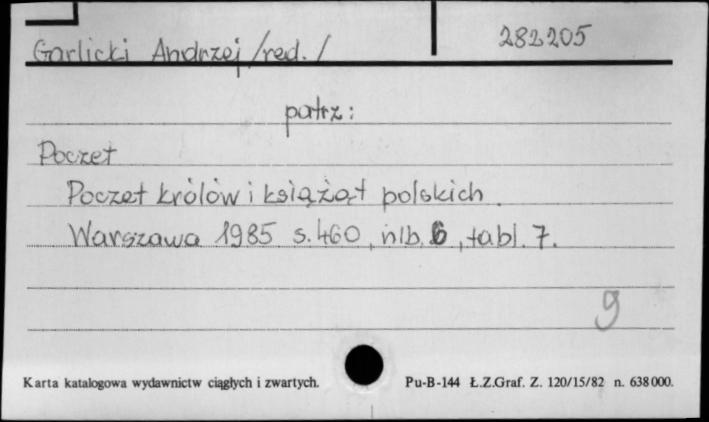 Garlicki Andrzej /red./ 282205
patrz:
Poczet
Poczet królów i książąt polskich.
Warszawa 1985 s. 460, nlb. 6, tabl. 7.
9
Karta katalogowa wydawnictw ciągłych i zwartych. Pu-B-144 Ł.Z.Graf. Z. 120/15/82 n. 638000.